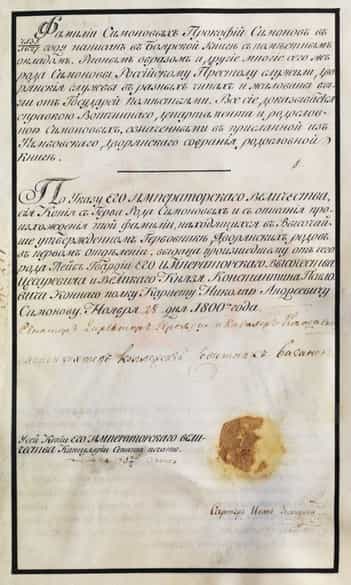 Фамилии Симоновыхъ Прокофій Симоновъ въ
году написанъ въ Боярской Книгѣ съ помѣстнымъ
окладомъ. Равнымъ образомъ и другіе многіе сего же
рода Симоновы Россійскому Престолу служили дво-
рянскія службы въ разныхъ чинахъ и жалованы бы-
ли отъ Государей помѣстьями. Все сіе доказывается
справкою Вотчиннаго Департамента и родослов-
ною Симоновыхъ, означенными въ присланной изъ
дворянскаго собранія родословной
Книгѣ.
По Указу ЕГО ИМПЕРАТОРСКАГО ВЕЛИЧЕСТВА,
сія Копія съ Герба Рода Симоновыхъ и съ описанія про-
изхожденія той фамиліи, находящихся въ Высочай-
ше утвержденномъ Гербовникѣ Дворянскихъ родовъ,
въ первомъ отдѣленіи, выдана произшедшему отъ сего
рода Лейбъ Гвардіи ЕГО ИМПЕРАТОРСКАГО ВЫСОЧЕСТВА
Цесаревича и Великаго Князя Константина Павло-
вича Коннаго полку Корнету Николаю Андреевичу
Симонову. Ноября 28 дня 1800 года.
У сей Копіи ЕГО ИМПЕРАТОРСКАГО ВЕЛИ-
ЧЕСТВА Канцеляріи печать.